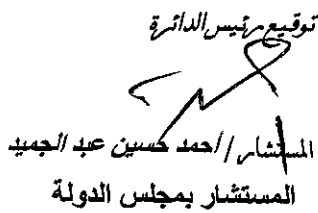 توقيع رئيس الدائرة
المستشار // احمد حسين عبد الجميد
المستشار بمجلس الدولة